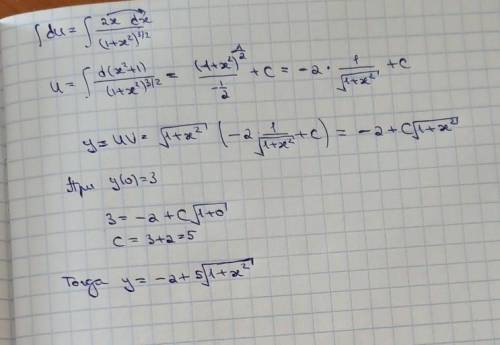 ∫du = ∫ 2x dx / (1+x²)^3/2
u = ∫ d(x²+1) / (1+x²)^3/2 = (1+x²)^-1/2 / -1/2 + C = -2 · 1/√(1+x²) + C
y = uv = √(1+x²) (-2 1/√(1+x²) + C) = -2 + C√(1+x²)
При y(0)=3
3 = -2 + C√(1+0)
C = 3+2 = 5
Тогда y = -2 + 5√(1+x²)